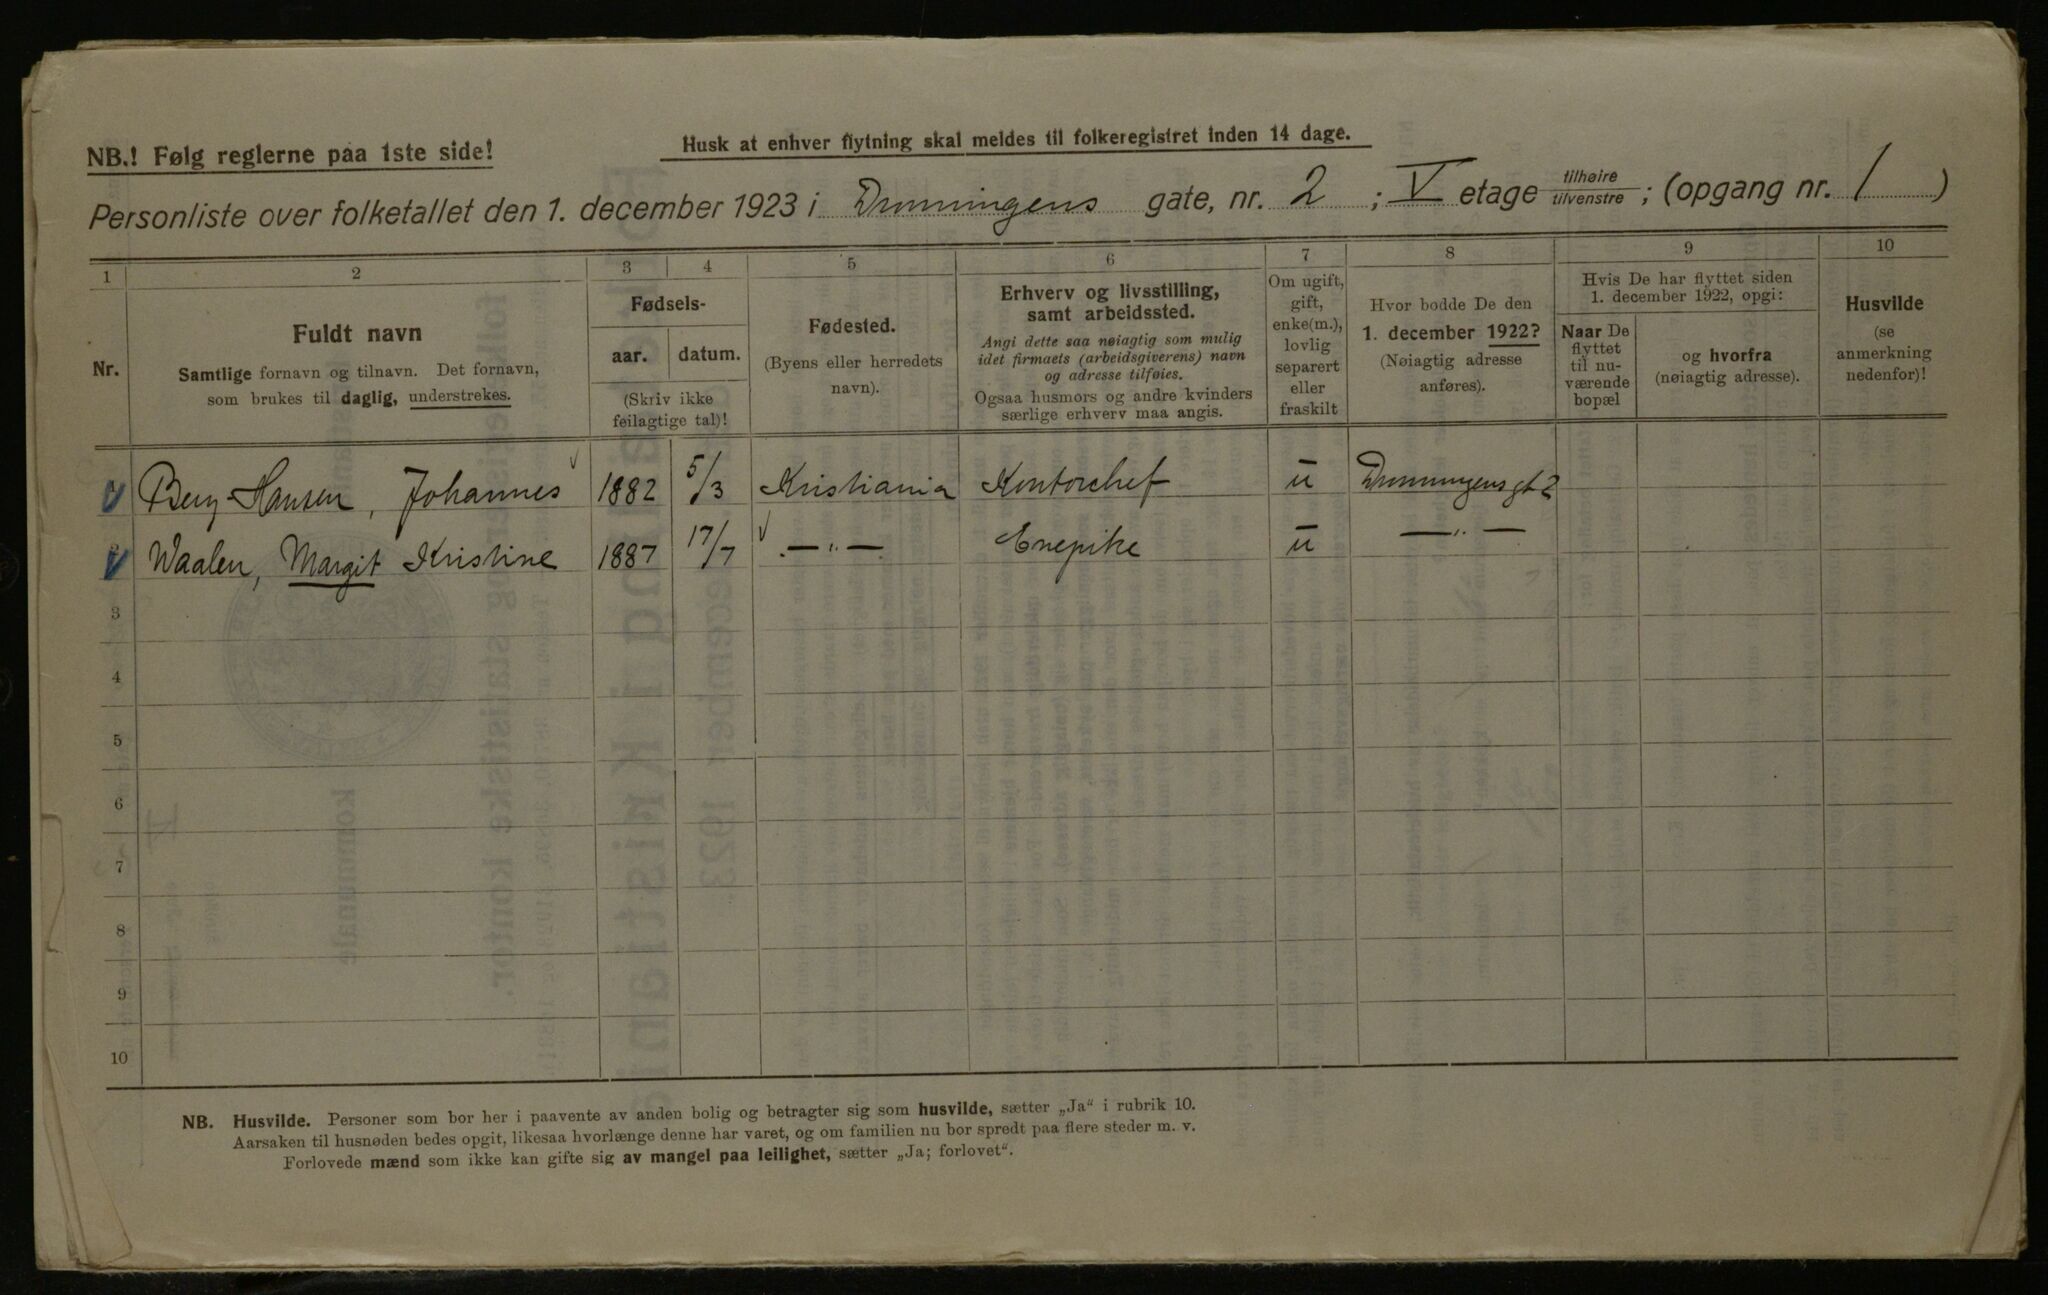 NB.! Følg reglerne paa 1ste side!
Husk at enhver flytning skal meldes til folkeregistret inden 14 dage.
Personliste over folketallet den 1. december 1923 i Dronningens gate, nr. 2 ; V etage tilhøire tilvenstre ; (opgang nr. 1 )
1 2 3 4 5 6 7 8 9 10
Nr.
Fuldt navn
Samtlige fornavn og tilnavn. Det fornavn,
som brukes til daglig, understrekes.
Fødsels-
aar. datum.
(Skriv ikke
feilagtige tal)!
Fødested.
(Byens eller herredets
navn).
Erhverv og livsstilling,
samt arbeidssted.
Angi dette saa nøiagtig som mulig
idet firmaets (arbeidsgiverens) navn
og adresse tilføies.
Ogsaa husmors og andre kvinders
særlige erhverv maa angis.
Om ugift,
gift,
enke(m.),
lovlig
separert
eller
fraskilt
Hvor bodde De den
1. december 1922?
(Nøiagtig adresse
anføres).
Hvis De har flyttet siden
1. december 1922, opgi:
Naar De
flyttet
til nu-
værende
bopæl
og hvorfra
(nøiagtig adresse).
Husvilde
(se
anmerkning
nedenfor)!
Berg-Hansen, Johannes 1882 5/3 Kristiania Kontorchef u Dronningensgt 2
Waalen, Margit Kristine 1887 17/7 — " — Enepike u — " —
3
4
5
6
7
8
9
10
NB. Husvilde. Personer som bor her i paavente av anden bolig og betragter sig som husvilde, sætter „Ja" i rubrik 10.
Aarsaken til husnøden bedes opgit, likesaa hvorlænge denne har varet, og om familien nu bor spredt paa flere steder m. v.
Forlovede mænd som ikke kan gifte sig av mangel paa leilighet, sætter „Ja; forlovet".